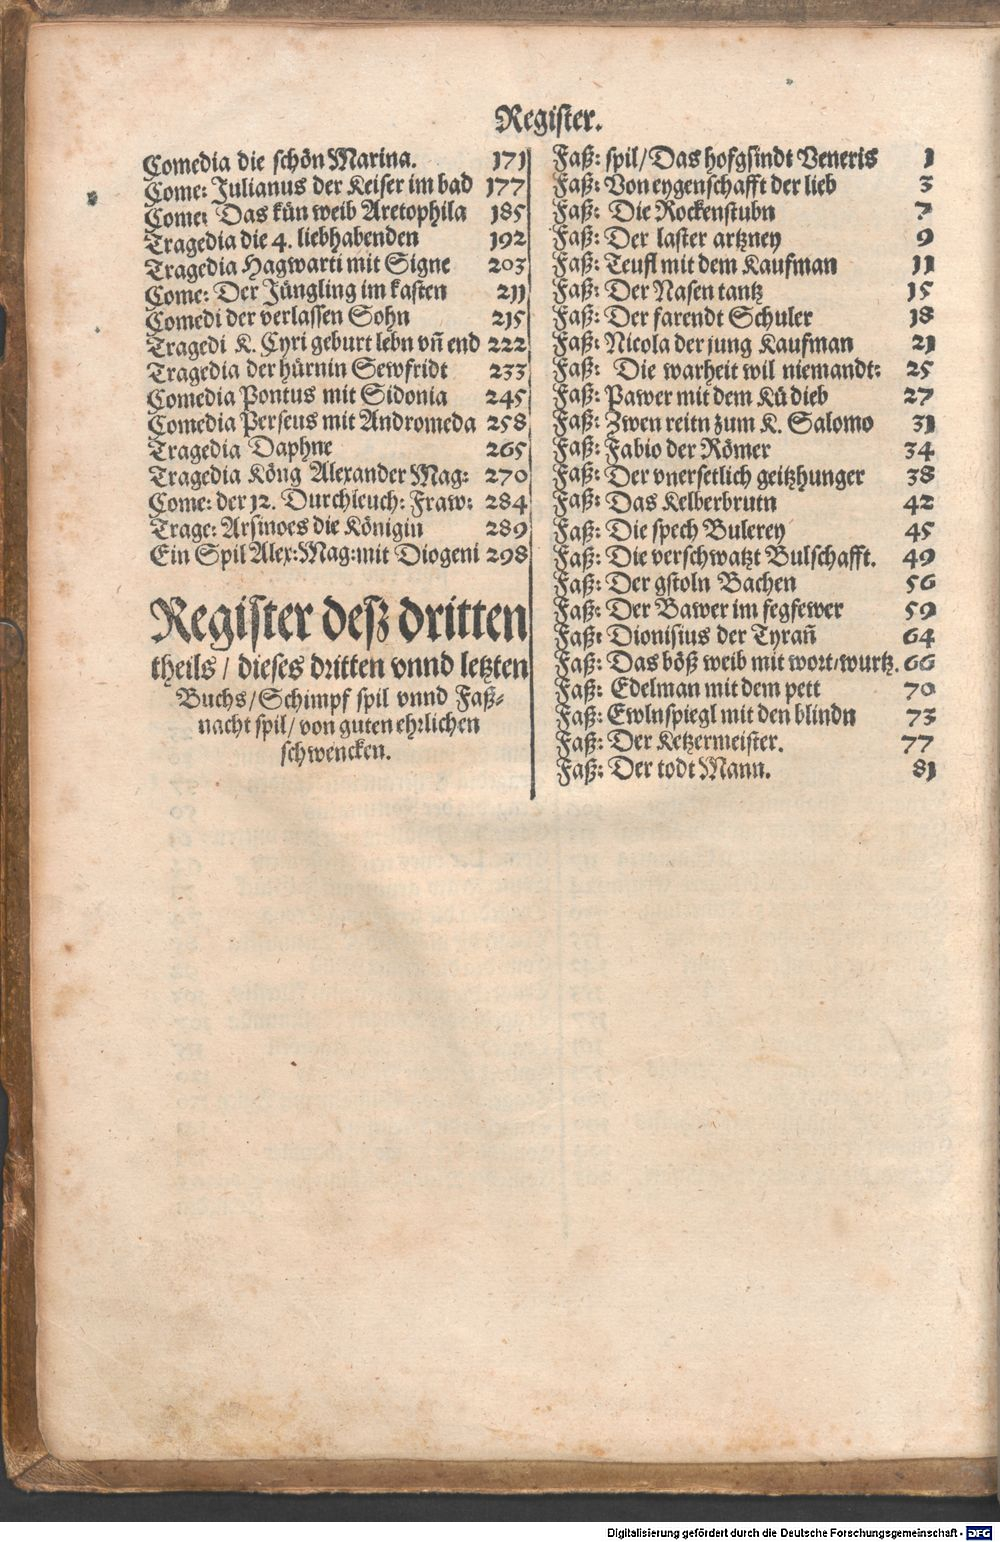 Register.
Comedia die schön Marina. 171
Come: Julianus der Keiser im bad 177
Come: Das kün weib Aretophila 185
Tragedia die 4. liebhabenden 192
Tragedia Hagwarti mit Signe 203
Come: Der Jüngling im kasten 211
Comedi der verlassen Sohn 215
Tragedi K. Cyri geburt lebn vn̄ end 222
Tragedia der hürnin Sewfridt 233
Comedia Pontus mit Sidonia 245
Comedia Perseus mit Andromeda 258
Tragedia Daphne 265
Tragedia Köng Alexander Mag: 270
Come: der 12. Durchleuch: Fraw: 284
Trage: Arsinoes die Königin 289
Ein Spil Alex: Mag: mit Diogeni 298
Register desz dritten
theils / dieses dritten vnnd letzten
Buchs / Schimpf spil vnnd Faß-
nacht spil / von guten ehrlichen
schwencken.
Faß: spil / Das hofgsindt Veneris 1
Faß: Von eygenschafft der lieb 3
Faß: Die Rockenstubn 7
Faß: Der laster artzney 9
Faß: Teufl mit dem Kaufman 11
Faß: Der Nasen tantz 15
Faß: Der farendt Schuler 18
Faß: Nicola der jung Kaufman 21
Faß: Die warheit wil niemandt: 25
Faß: Pawer mit dem Kü dieb 27
Faß: Zwen reitn zum K. Salomo 31
Faß: Fabio der Römer 34
Faß: Der vnersetlich geitzhunger 38
Faß: Das Kelberbrutn 42
Faß: Die spech Bulerey 45
Faß: Die verschwatzt Bulschafft. 49
Faß: Der gstoln Bachen 56
Faß: Der Bawer im fegfewer 59
Faß: Dionisius der Tyran̄ 64
Faß: Das böß weib mit wort / wurtz. 66
Faß: Edelman mit dem pett 70
Faß: Ewlnspiegl mit den blindn 73
Faß: Der Ketzermeister. 77
Faß: Der todt Mann. 81
Digitalisierung gefördert durch die Deutsche Forschungsgemeinschaft - DFG